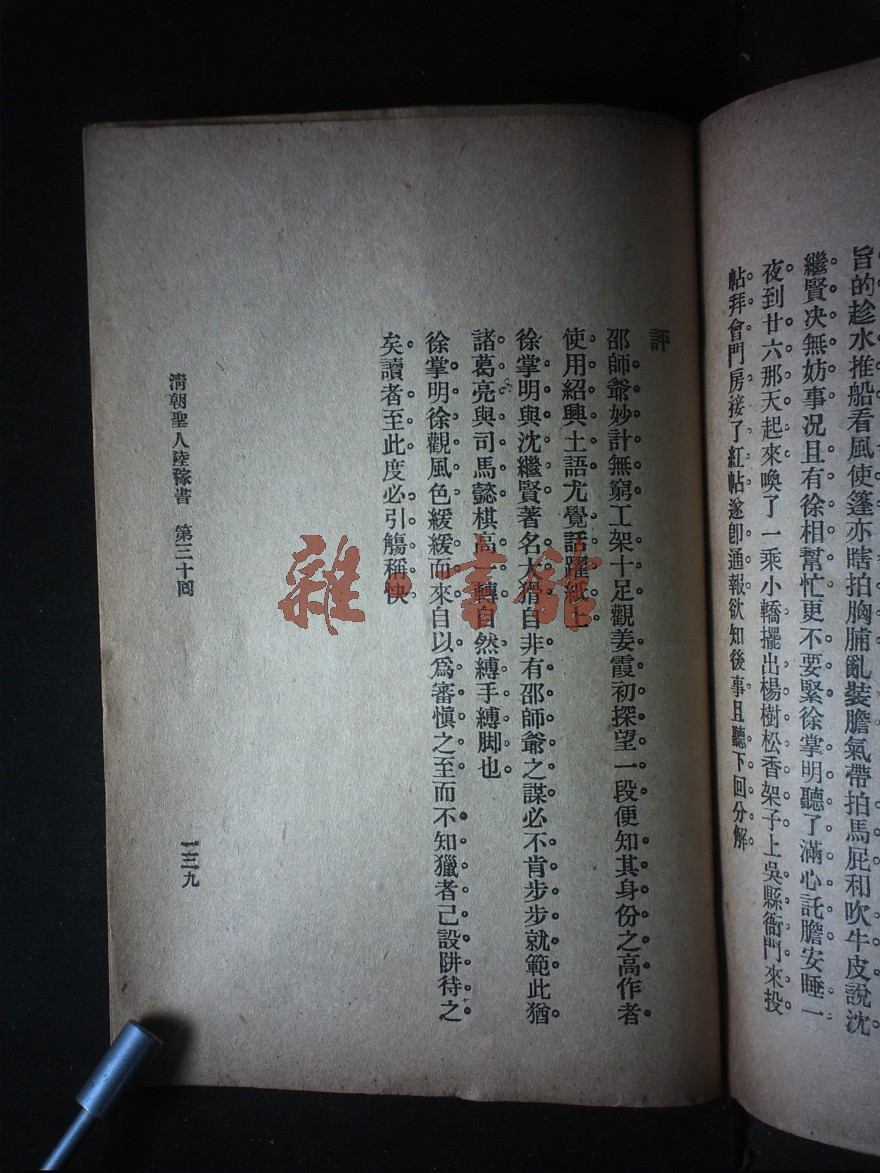 旨的趁水推船看風使篷亦瞎拍胸脯亂裝膽氣帶拍馬屁和吹牛皮說沈
繼賢决無妨事况且有徐相幫忙更不要緊徐掌明聽了滿心託膽安睡一
夜到廿六那天起來喚了一乘小轎擺出楊樹松香架子上吳縣衙門來投
帖拜會門房接了紅帖遂卽通報欲知後事且聽下回分解
評
邵師爺妙計無窮工架十足觀姜霞初探望一段便知其身份之高作者
使用紹興土語尤覺活躍紙上
徐掌明與沈繼賢著名大猾自非有邵師爺之謀必不肯步步就範此猶
諸葛亮與司馬懿棋高一轉自然縛手縛脚也
徐掌明徐觀風色緩緩而來自以爲審愼之至而不知獵者已設阱待之
矣讀者至此度必引觴稱快
淸朝聖人陸稼書 第三十回
一三九
雜·書館